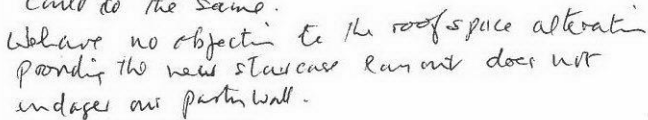 could do the same.
We have no objection to the roof space alteration
providing the new staircase layout does not
endager our party wall.